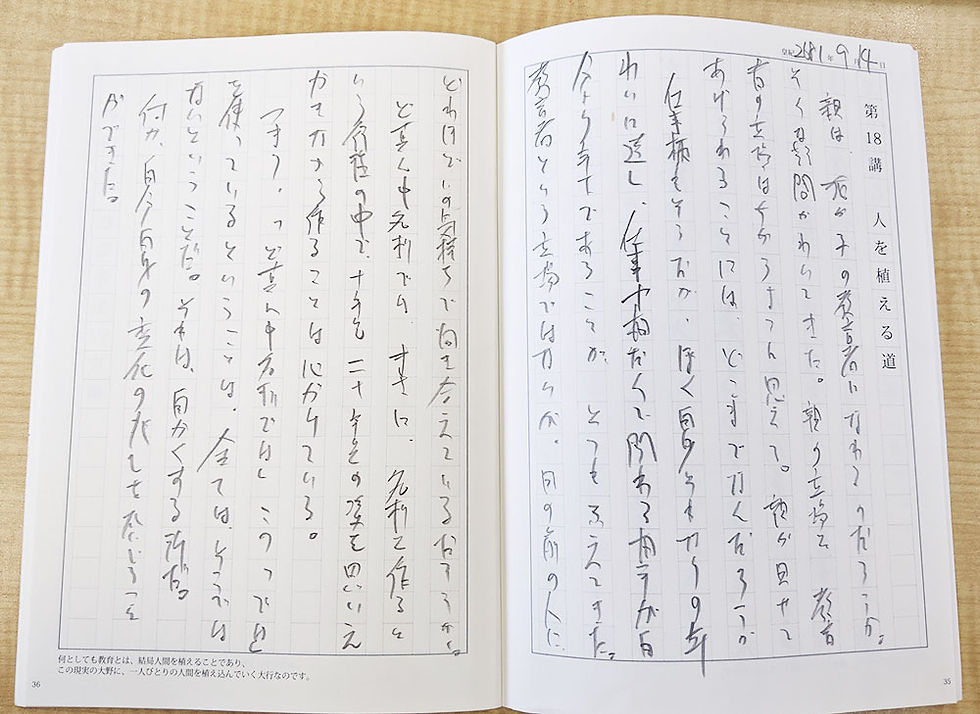 皇紀2681年9月14日
第18講 人を植える道
親は、我が子の教育者になれるのだろうか。
そんな疑問がわいてきた。親の立場と教育
者の立場はちがうように思えて。親が見せて
あげられることには、どこまでなんだろうか
仕事柄もそうだが、ぼく自身それなりの年
れいに達し、仕事で相対して関わる相手が自
分より年下であることが、とてもふえてきた。
教育者という立場ではないが、目の前の人に、
35
どれほどの気持ちで向き合えているだろうか。
ど真ん中名刺では、まさに、名刺を作ると
いう行程の中で、十年も二十年もその後を思いえ
ながら作ることは心がけている。
つまり、ど真ん中名刺では
を使っているということは、全ては、そうでは
ないということだ。それは、自かくする所だ。
何か、自分自身の変化の兆しを感じること
ができた。
何としても教育とは、結局人間を植えることであり、
この現実の大野に、一人びとりの人間を植え込んでいく大行なのです。
36